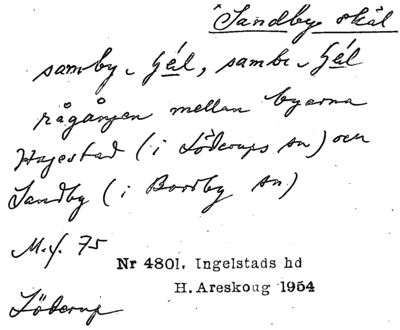 Sandby skäl
samby - sjɛ́l, sambi - sjɛ́l
rågången mellan byarna
Hagestad (i Löderups sn) och
Sandby (i Borrby sn)
M.f. 75
Nr 4801. Ingelstads hd
H. Areskoug 1954
Löderup